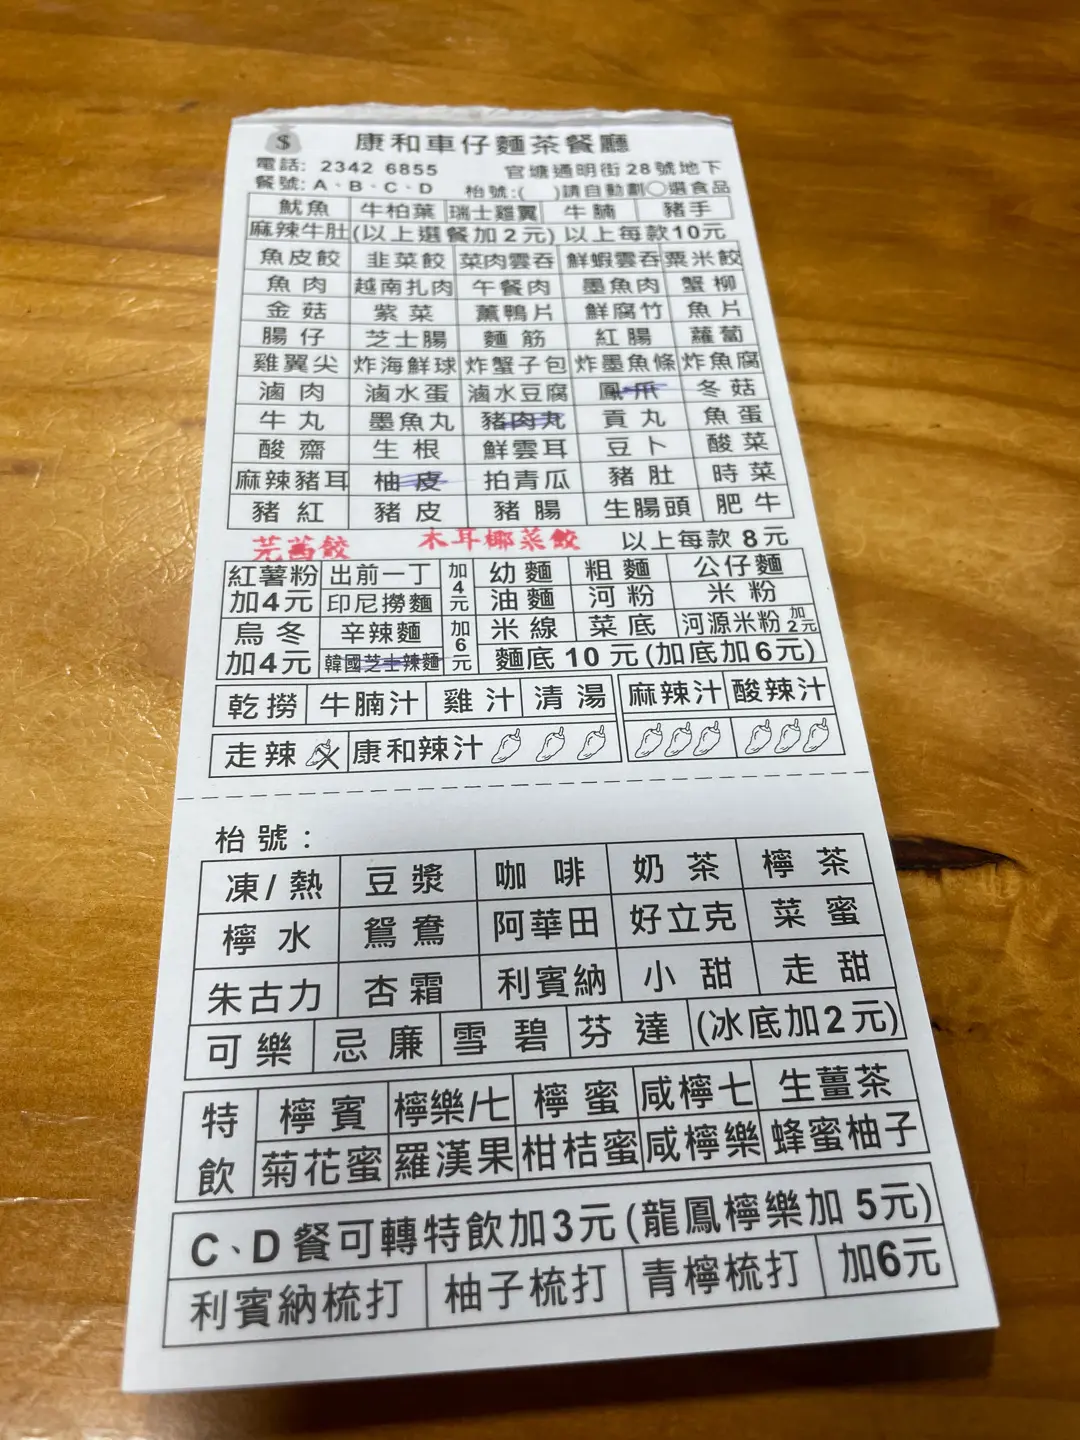 $ 康和車仔麵茶餐廳
電話: 2342 6855 官塘通明街28號地下
餐號: A、B、C、D 枱號:( )請自動劃○選食品
魷魚 牛柏葉 瑞士雞翼 牛腩 豬手
麻辣牛肚(以上選餐加2元) 以上每款10元
魚皮餃 韭菜餃 菜肉雲吞 鮮蝦雲吞 粟米餃
魚肉 越南扎肉 午餐肉 墨魚肉 蟹柳
金菇 紫菜 薰鴨片 鮮腐竹 魚片
腸仔 芝士腸 麵筋 紅腸 蘿蔔
雞翼尖 炸海鮮球 炸蟹子包 炸墨魚條 炸魚腐
滷肉 滷水蛋 滷水豆腐 鳳爪 冬菇
牛丸 墨魚丸 豬肉丸 貢丸 魚蛋
酸齋 生根 鮮雲耳 豆卜 酸菜
麻辣豬耳 柚皮 拍青瓜 豬肚 時菜
豬紅 豬皮 豬腸 生腸頭 肥牛
芫茜餃 木耳椰菜餃 以上每款8元
紅薯粉 出前一丁 加4元 幼麵 粗麵 公仔麵
加4元 印尼撈麵 油麵 河粉 米粉
烏冬 辛辣麵 加6元 米線 菜底 河源米粉 加2元
加4元 韓國芝士辣麵 麵底10元(加底加6元)
乾撈 牛腩汁 雞汁 清湯 麻辣汁 酸辣汁
走辣 康和辣汁
枱號:
凍/熱 豆漿 咖啡 奶茶 檸茶
檸水 鴛鴦 阿華田 好立克 菜蜜
朱古力 杏霜 利賓納 小甜 走甜
可樂 忌廉 雪碧 芬達 (冰底加2元)
特飲 檸賓 檸樂/七 檸蜜 咸檸七 生薑茶
菊花蜜 羅漢果 柑桔蜜 咸檸樂 蜂蜜柚子
C、D餐可轉特飲加3元(龍鳳檸樂加5元)
利賓納梳打 柚子梳打 青檸梳打 加6元